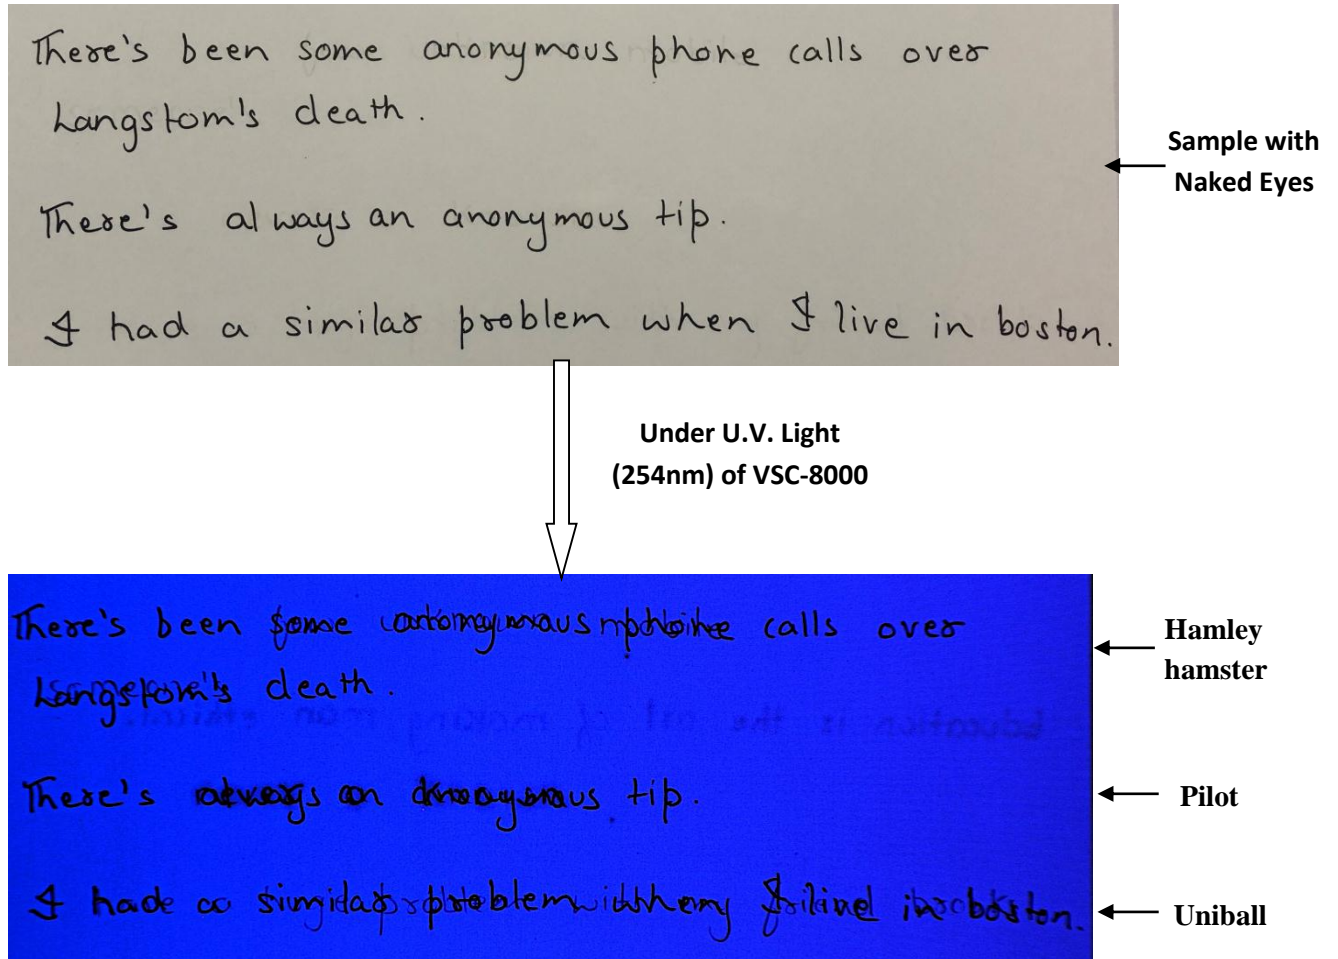 There's been some anonymous phone calls over
Langstom's death.
There's always an anonymous tip.
I had a similar problem when I live in boston.
Sample with
Naked Eyes
Under U.V. Light
(254nm) of VSC-8000
There's been calls over
death.
There's tip.
I
boston.
Education is the art of making man ethical.
Hamley
hamster
Pilot
Uniball